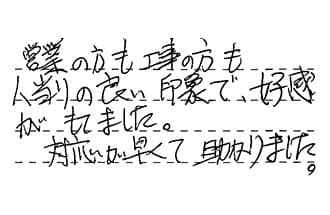 営業の方も工事の方も
人当りの良い印象で、好感
がもてました。
対応が早くて助かりました。